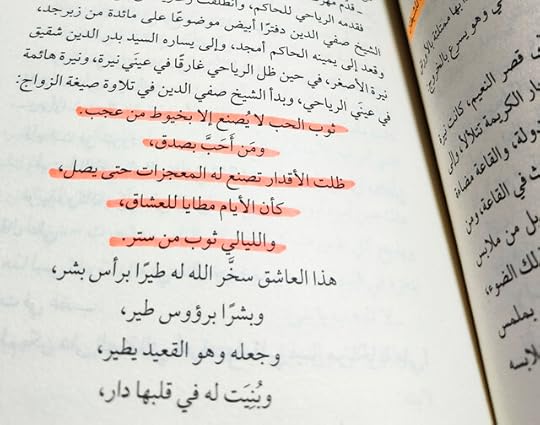 فقدمه الرياحي للحاكم، وانطلقت
الشيخ صفي الدين دفترًا أبيض موضوعًا على مائدة من زبرجد،
وقعد إلى يمينه الحاكم أمجد، وإلى يساره السيد بدر الدين شقيق
نيرة الأصغر، في حين ظل الرياحي غارقًا في عينَي نيرة، ونيرة هائمة
في عينَي الرياحي، وبدأ الشيخ صفي الدين في تلاوة صيغة الزواج:
ثوب الحب لا يُصنع إلا بخيوط من عجب.
ومَن أَحَبَّ بصدق،
ظلت الأقدار تصنع له المعجزات حتى يصل،
كأن الأيام مطايا للعشاق،
والليالي ثوب من ستر.
هذا العاشق سخَّر الله له طيرًا برأس بشر،
وبشرًا برؤوس طير،
وجعله وهو القعيد يطير،
وبُنِيَت له في قلبها دار،
قصر النعيم، كانت نيرة
الكريمة تتلألأ، وإلى
والقاعة مضاءة
في القاعة، ومن
من ملابس
الضوء،
بملمس